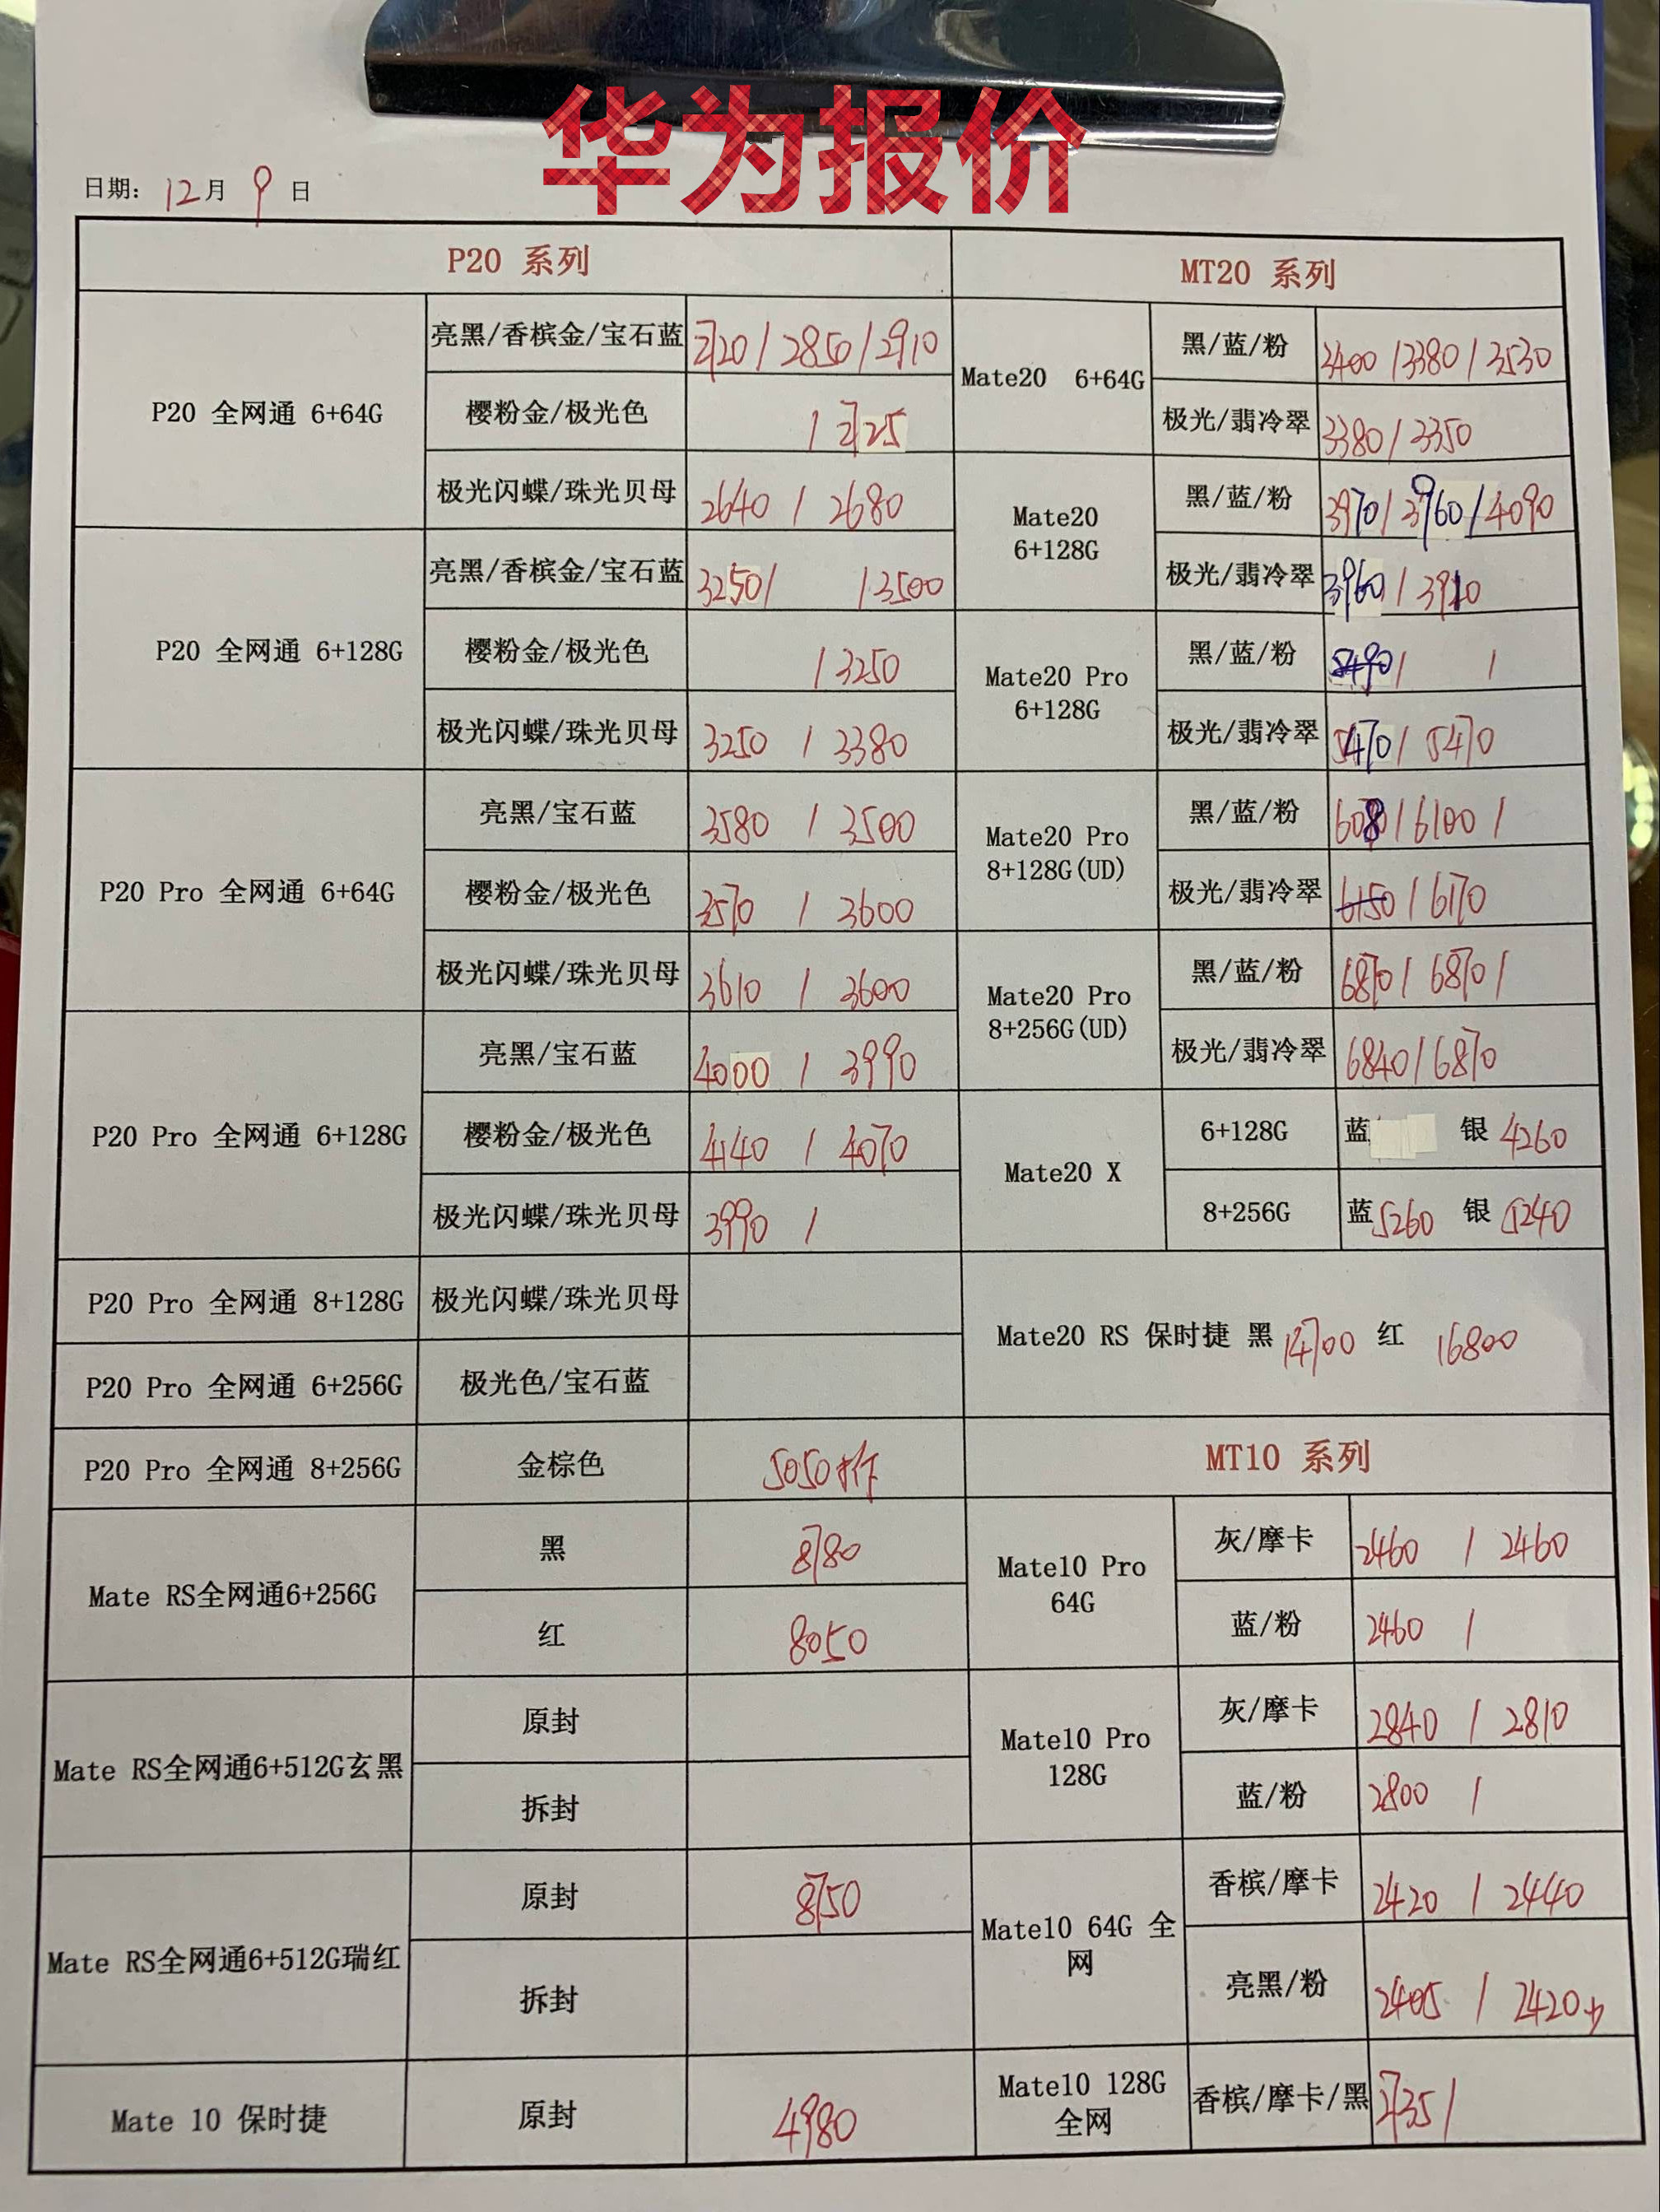 华为报价
日期: 12月 9 日
P20 系列
P20 全网通 6+64G
亮黑/香槟金/宝石蓝 2720/2850/2910
樱粉金/极光色 /2725
极光闪蝶/珠光贝母 2640 / 2680
P20 全网通 6+128G
亮黑/香槟金/宝石蓝 3250/ /3500
樱粉金/极光色 /3250
极光闪蝶/珠光贝母 3250 / 3380
P20 Pro 全网通 6+64G
亮黑/宝石蓝 3580 / 3500
樱粉金/极光色 3570 / 3600
极光闪蝶/珠光贝母 3610 / 3600
P20 Pro 全网通 6+128G
亮黑/宝石蓝 4000 / 3990
樱粉金/极光色 4140 / 4070
极光闪蝶/珠光贝母 3990 /
P20 Pro 全网通 8+128G 极光闪蝶/珠光贝母
P20 Pro 全网通 6+256G 极光色/宝石蓝
P20 Pro 全网通 8+256G 金棕色 5050拆
Mate RS全网通6+256G
黑 8780
红 8050
Mate RS全网通6+512G玄黑
原封
拆封
Mate RS全网通6+512G瑞红
原封 8750
拆封
Mate 10 保时捷 原封 4980
MT20 系列
Mate20 6+64G
黑/蓝/粉 3400/3380/3530
极光/翡冷翠 3380/3350
Mate20
6+128G
黑/蓝/粉 3970/3960/4090
极光/翡冷翠 3960/
Mate20 Pro
6+128G
黑/蓝/粉 5490/ /
极光/翡冷翠 5470/5470
Mate20 Pro
8+128G(UD)
黑/蓝/粉 /6100/
极光/翡冷翠 6150/6170
Mate20 Pro
8+256G(UD)
黑/蓝/粉 6870/6870/
极光/翡冷翠 6840/6870
Mate20 X
6+128G 蓝 银 4260
8+256G 蓝5260 银 5240
Mate20 RS 保时捷 黑 14700 红 16800
MT10 系列
Mate10 Pro
64G
灰/摩卡 2460 / 2460
蓝/粉 2460 /
Mate10 Pro
128G
灰/摩卡 2840 / 2810
蓝/粉 2800 /
Mate10 64G 全
网
香槟/摩卡 2420 / 2440
亮黑/粉 2405 / 2420
Mate10 128G
全网
香槟/摩卡/黑 2735/